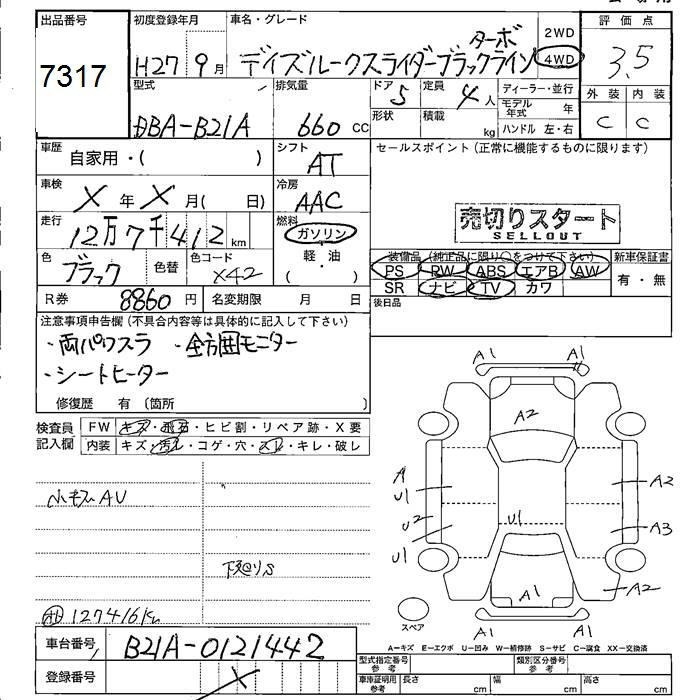 出品番号
7317
初度登録年月
H27 9月
車名・グレード
ターボ
デイズルークスライダーブラックライン
2WD
4WD
評価点
3.5
型式
DBA-B21A
排気量
660 CC
ドア
5
形状
定員
4人
積載
kg
ディーラー・並行
モデル年式 年
ハンドル 左・右
外装
C
内装
C
車歴
自家用・( )
シフト
AT
セールスポイント(正常に機能するものに限ります)
車検
X年X月( 日)
冷房
AAC
売切りスタート
SELLOUT
走行
12万7千412km
燃料
ガソリン
軽・油
( )
色
ブラック
色替
色コード
X42
装備品(純正品に限り〇をつけて下さい)
PS PW ABS エアB AW
SR ナビ TV カワ
新車保証書
有・無
R券
8860円
名変期限 月 日
後日品
注意事項申告欄(不具合内容等は具体的に記入して下さい)
・両パワスラ ・全方囲モニター
・シートヒーター
修復歴 有(箇所 )
検査員記入欄
FW キズ・飛石・ヒビ割・リペア跡・X要
内装 キズ・汚レ・コゲ・穴・スレ・キレ・破レ
AU
下廻りS
127416km
A1
A1
A2
A
U1
U2
U1
U1
A2
A3
A2
A1
A1
A1
スペア
A=キズ E=エクボ U=凹み W=補修跡 S=サビ C=腐食 XX=交換済
車台番号
B21A-0121442
登録番号
X
型式指定番号
参考
類別区分番号
参考
車庫証明用
参考
長さ cm
幅 cm
高さ cm